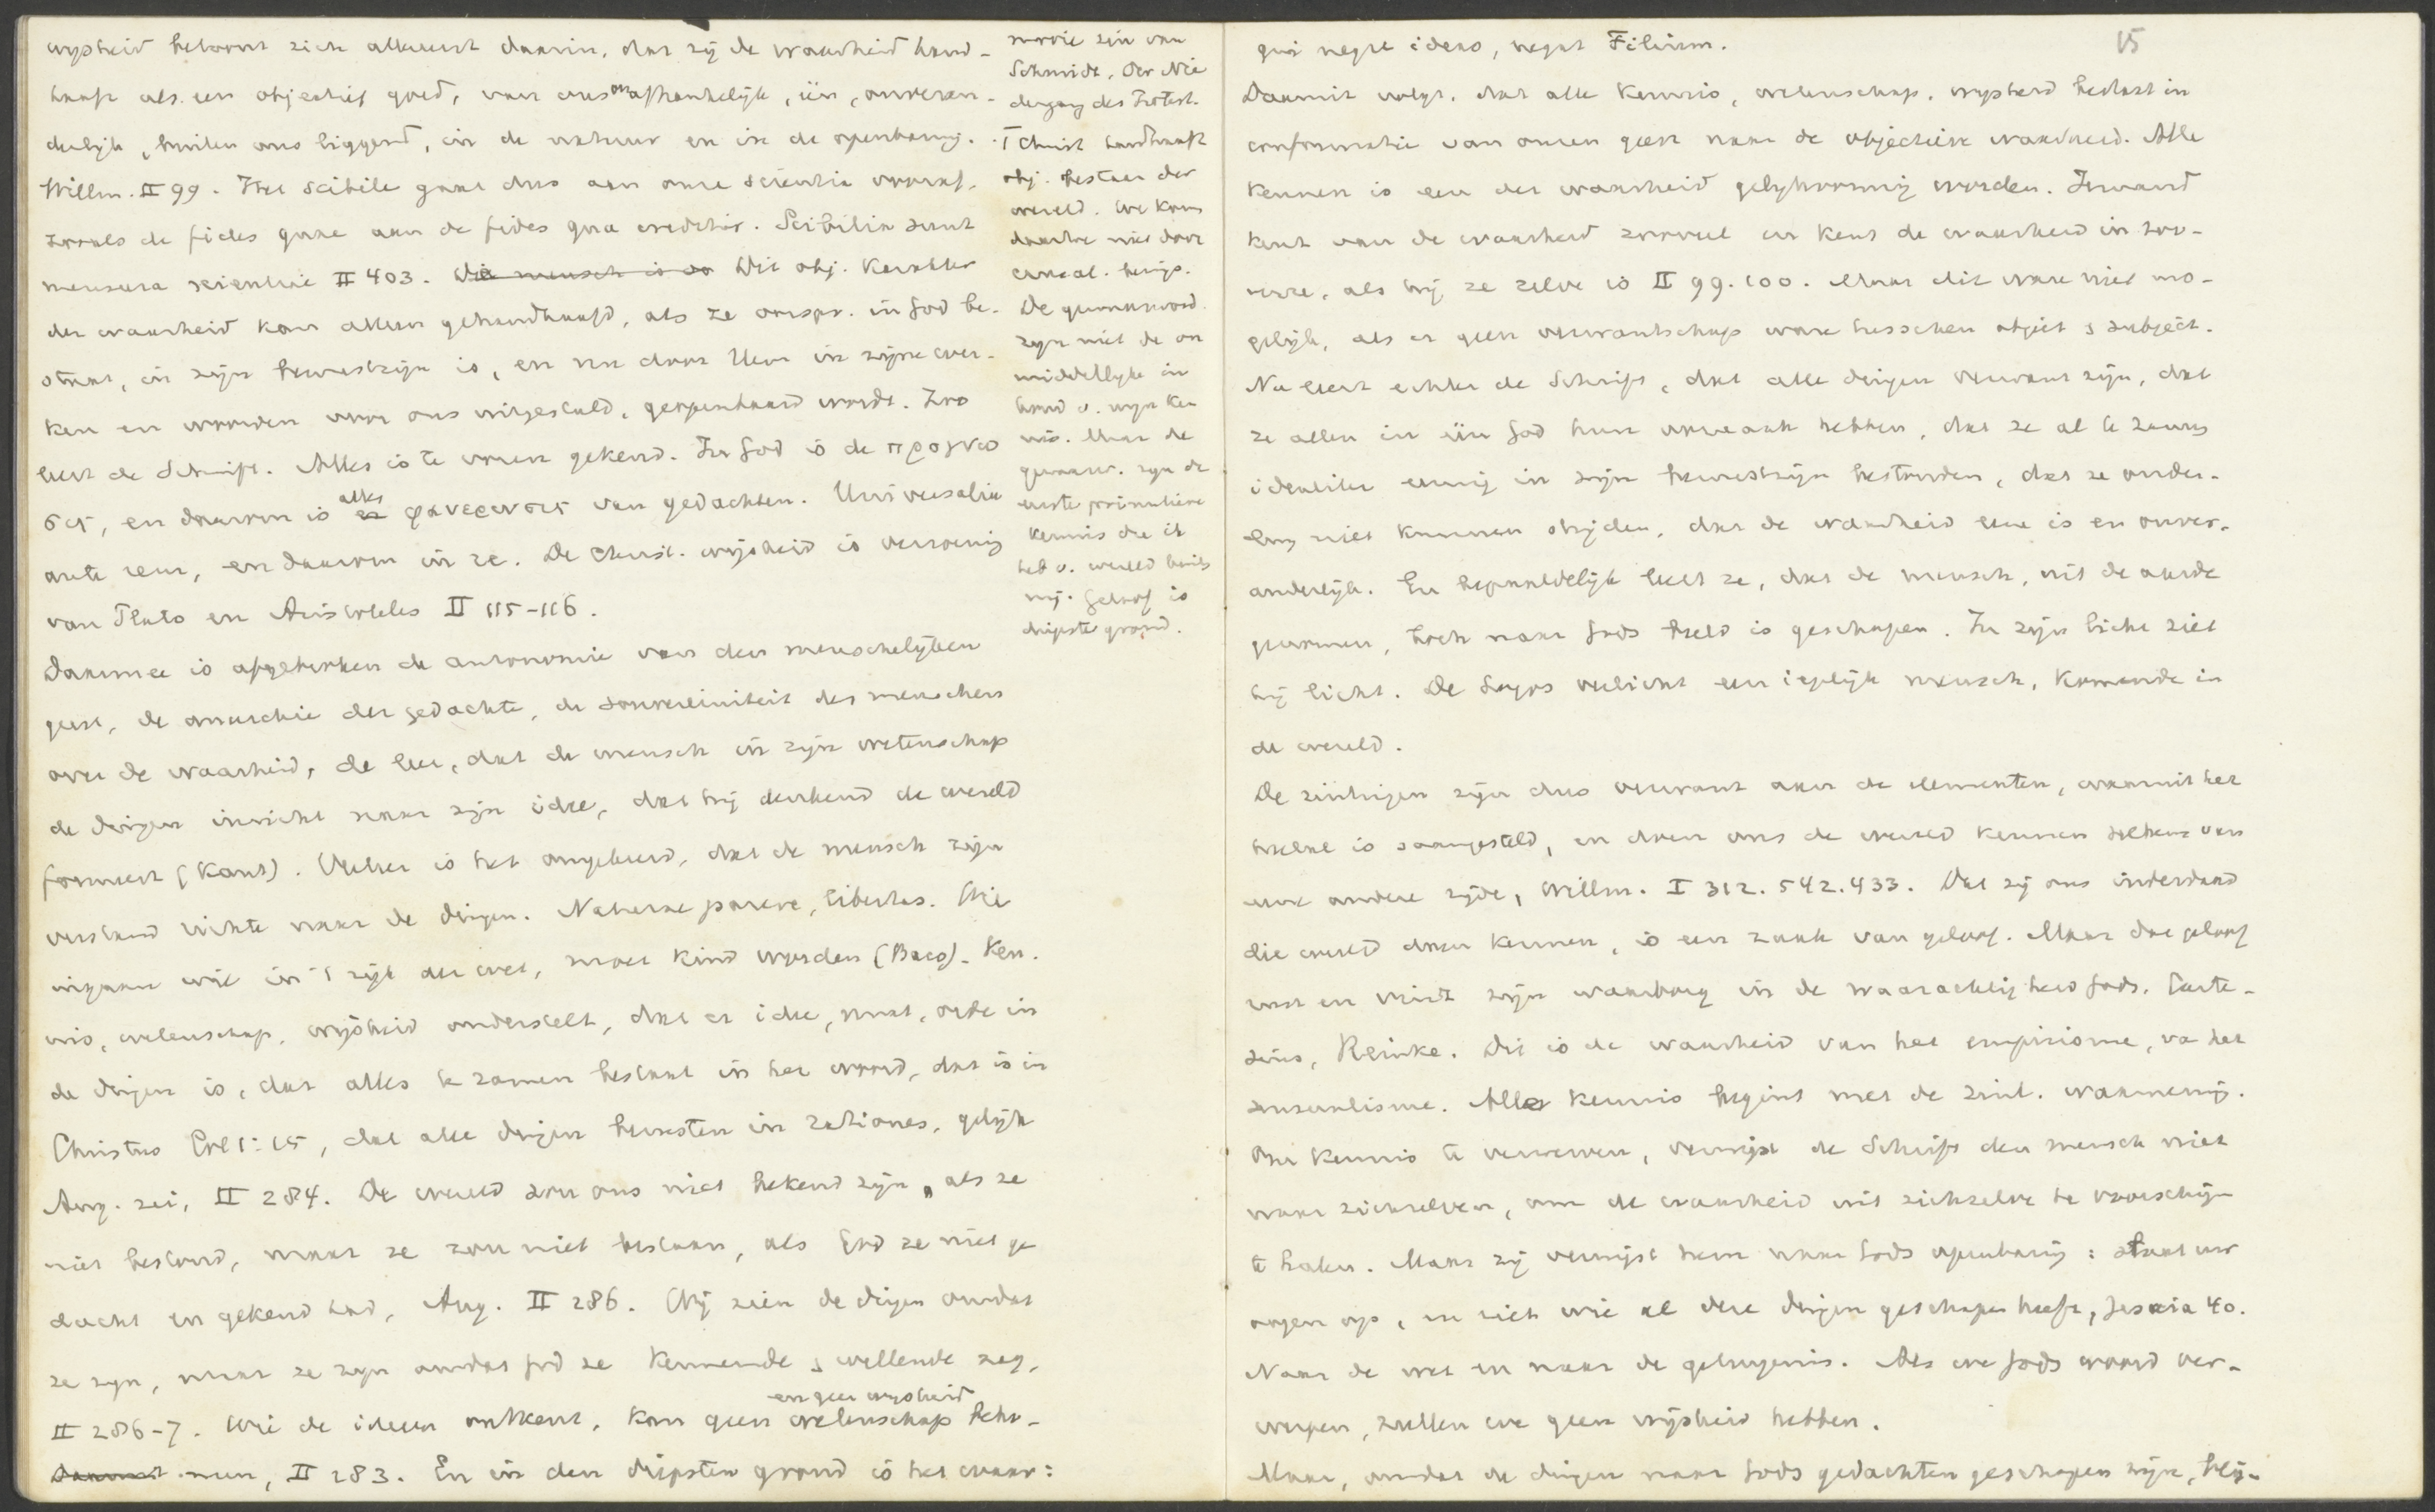 wijsheid betoont zich allereerst daarin, dat zij de waarheid hand-
haaft als een objectief goed, van ons onafhankelijk, één, onveran-
derlijk, buiten ons liggend, in de natuur en in de openbaring.
Willm. II 99. Het scibile gaat dus aan onze scientia vooraf,
zooals de fides quae aan de fides qua creditur. Scibilia sunt
mensura scientiae II 403. De mensch is Dit obj. karakter
der waarheid kan alleen gehandhaafd, als ze oorspr. in God be-
staat, in zijn bewustzijn is, en nu door Hem in zijne wer-
ken en woorden voor ons uitgestald, geopenbaard wordt. Zoo
leert de Schrift. Alles is te voren gekend. In God is de προγνω
σις, en daarom is alles φανερωσις van gedachten. Universalia
ante rem, en daarom in re. De Christ. wijsheid is vereenig
van Plato en Aristoteles II 115-116.
Daarmee is afgebroken de autonomie van den menschelijken
geest, de anarchie der gedachte, de souvereiniteit des menschen
over de waarheid, de leer, dat de mensch in zijn wetenschap
de dingen inricht naar zijn idee, dat hij denkend de wereld
formeert (Kant). Veeleer is het omgekeerd, dat de mensch zijn
verstand richte naar de dingen. Naturae parere, libertas. Wie
ingaan wil in 't rijk der wet, moet kind worden (Baco). Ken-
nis, wetenschap, wijsheid onderstelt, dat er idee, maat, orde in
de dingen is, dat alles te zamen bestaat in het woord, dat is in
Christus Col 1:15, dat alle dingen berusten in rationes, gelijk
Aug. zei, II 284. De wereld zou ons niet bekend zijn, als ze
niet bestond, maar ze zou niet bestaan, als God ze niet ge
dacht en gekend had, Aug. II 286. Wij zien de dingen omdat
ze zijn, maar ze zijn omdat God ze kennende & willende zag,
en geen wijsheid
II 286-7. Wie de ideeen ontkent, kan geen wetenschap beha-
Daarmit men, II 283. En in den diepsten grond is het waar:
mooie zin van
Schmidt, Der Nie
dergang des Protest.
't Christ handhaaft
obj. bestaan der
wereld. We kom
daartoe niet door
causal. begrip.
De gewaarword.
zijn niet de on
middellijke in
houd v. mijn ken
nis. Maar de
gewaarw. zijn de
eerste primitieve
kennis die ik
heb v. wereld buiten
mij. Geloof is
diepste grond.
15
qui negat ideas, negat Filium.
Daaruit volgt, dat alle kennis, wetenschap, wijsheid bestaat in
conformatie van onzen geest naar de objectieve waarheid. Alle
kennen is een der waarheid gelijkvormig worden. Iemand
kent van de waarheid zooveel en kent de waarheid in zoo-
verre, als hij ze zelve is II 99. 100. Maar dit ware niet mo-
gelijk, als er geen verwantschap ware tusschen object & subject.
Nu leert echter de Schrift, dat alle dingen verwant zijn, dat
ze allen in één God hun oorzaak hebben, dat ze al te zamen
idealiter eeuwig in zijn bewustzijn bestonden, dat ze onder-
ling niet kunnen strijden, dat de waarheid eene is en onver-
anderlijk. En bepaaldelijk leert ze, dat de mensch, uit de aarde
genomen, toch naar Gods beeld is geschapen. In zijn licht ziet
hij licht. De Logos verlicht een iegelijk mensch, komende in
de wereld.
De zintuigen zijn dus verwant aan de elementen, waaruit het
heelal is saamgesteld, en doen ons de wereld kennen telkens van
eene andere zijde, Willm. I 312. 542. 433. Dat zij ons inderdaad
die wereld doen kennen, is een zaak van geloof. Maar dat geloof
rust en vindt zijn waarborg in de waarachtigheid Gods. Carte-
sius, Reinke. Dit is de waarheid van het empirisme, va het
sensualisme. Alle kennis begint met de zinl. waarneming.
Om kennis te verwerven, verwijst de Schrift den mensch niet
naar zichzelven, om de waarheid uit zichzelve te voorschijn
te halen. Maar zij verwijst hem naar Gods openbaring: slaat uw
oogen op, en ziet wie al deze dingen geschapen heeft, Jesaia 40.
Naar de wet en naar de getuigenis. Als we Gods woord ver-
werpen, zullen we geen wijsheid hebben.
Maar, omdat de dingen naar Gods gedachten geschapen zijn, blij-